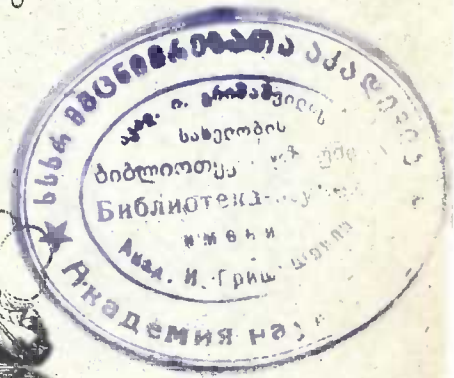 სსრ მეცნიერებათა აკადემი
აკად. ი. გრიშაშვილის
სახელობის
ბიბლიოთეკა
Библиотека
имени
Акад. И. Гриш
★ Академия на